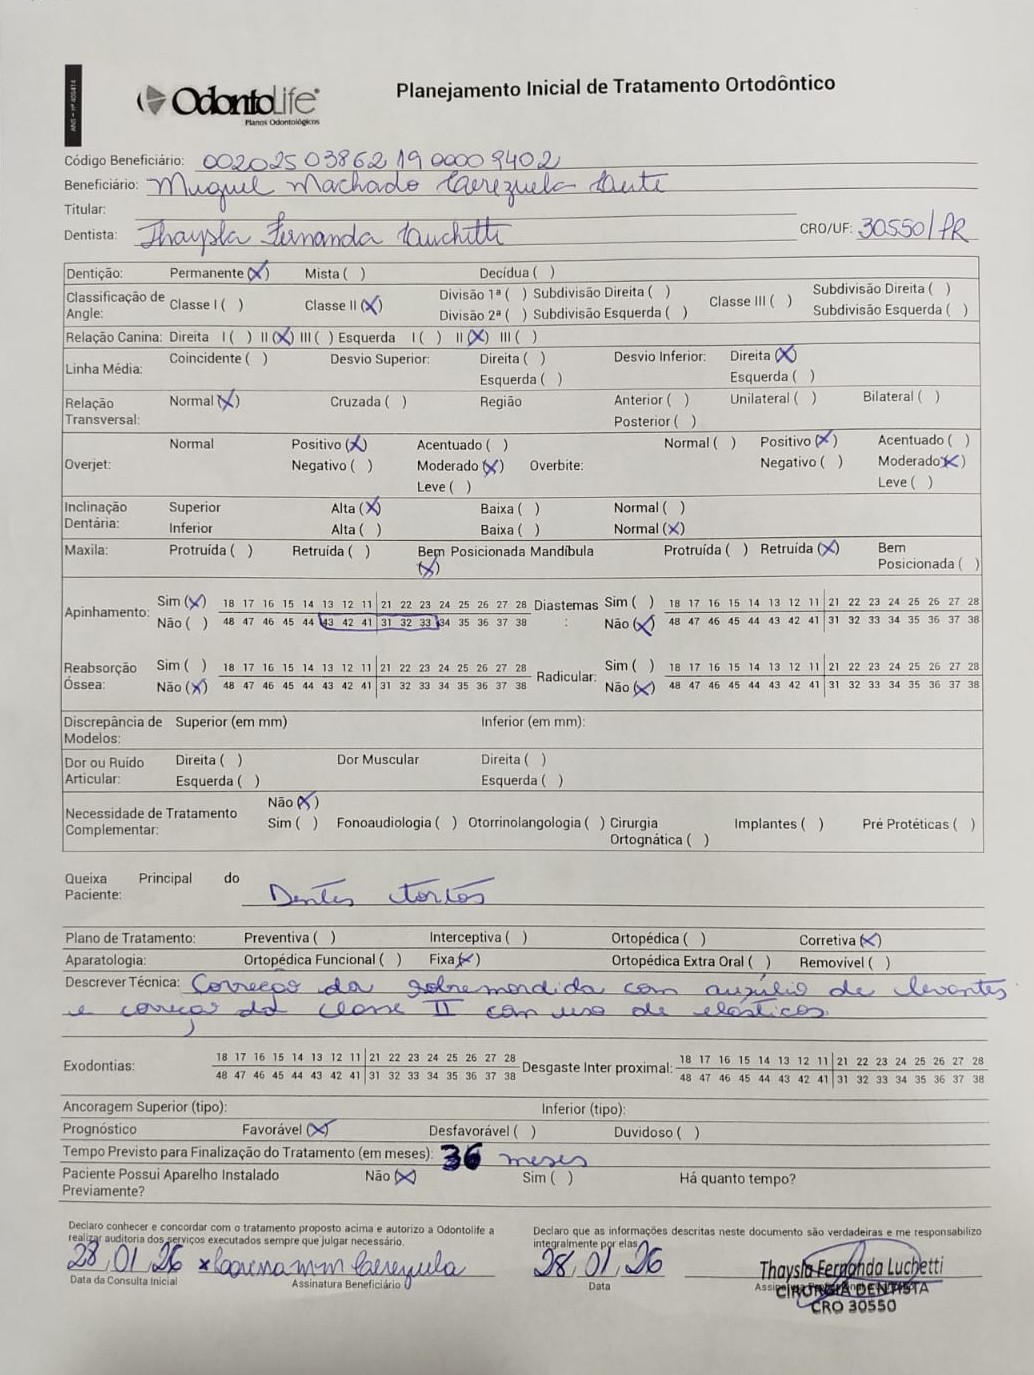 ANS - nº 406414
OdontoLife®
Planos Odontológicos
Planejamento Inicial de Tratamento Ortodôntico
Código Beneficiário: 002025038621900009402
Beneficiário: Miguel Machado
Titular:
Dentista: Thaysla Fernanda Luchetti CRO/UF: 30550/PR
Dentição: Permanente (X) Mista ( ) Decídua ( )
Classificação de Angle: Classe I ( ) Classe II (X) Divisão 1ª ( ) Subdivisão Direita ( ) Classe III ( ) Subdivisão Direita ( )
Divisão 2ª ( ) Subdivisão Esquerda ( ) Subdivisão Esquerda ( )
Relação Canina: Direita I ( ) II (X) III ( ) Esquerda I ( ) II (X) III ( )
Linha Média: Coincidente ( ) Desvio Superior: Direita ( ) Desvio Inferior: Direita (X)
Esquerda ( ) Esquerda ( )
Relação Transversal: Normal (X) Cruzada ( ) Região Anterior ( ) Unilateral ( ) Bilateral ( )
Posterior ( )
Normal Positivo (X) Acentuado ( ) Normal ( ) Positivo (X) Acentuado ( )
Overjet: Negativo ( ) Moderado (X) Overbite: Negativo ( ) Moderado (X)
Leve ( ) Leve ( )
Inclinação Dentária: Superior Alta (X) Baixa ( ) Normal ( )
Inferior Alta ( ) Baixa ( ) Normal (X)
Maxila: Protruída ( ) Retruída ( ) Bem Posicionada (X) Mandíbula Protruída ( ) Retruída (X) Bem Posicionada ( )
Apinhamento: Sim (X) 18 17 16 15 14 13 12 11 21 22 23 24 25 26 27 28 Diastemas: Sim ( ) 18 17 16 15 14 13 12 11 21 22 23 24 25 26 27 28
Não ( ) 48 47 46 45 44 43 42 41 31 32 33 34 35 36 37 38 Não (X) 48 47 46 45 44 43 42 41 31 32 33 34 35 36 37 38
Reabsorção Óssea: Sim ( ) 18 17 16 15 14 13 12 11 21 22 23 24 25 26 27 28 Radicular: Sim ( ) 18 17 16 15 14 13 12 11 21 22 23 24 25 26 27 28
Não (X) 48 47 46 45 44 43 42 41 31 32 33 34 35 36 37 38 Não (X) 48 47 46 45 44 43 42 41 31 32 33 34 35 36 37 38
Discrepância de Modelos: Superior (em mm) Inferior (em mm):
Dor ou Ruído Articular: Direita ( ) Dor Muscular Direita ( )
Esquerda ( ) Esquerda ( )
Necessidade de Tratamento Complementar: Não (X)
Sim ( ) Fonoaudiologia ( ) Otorrinolangologia ( ) Cirurgia Ortognática ( ) Implantes ( ) Pré Protéticas ( )
Queixa Principal do Paciente: Dentes tortos
Plano de Tratamento: Preventiva ( ) Interceptiva ( ) Ortopédica ( ) Corretiva (X)
Aparatologia: Ortopédica Funcional ( ) Fixa (X) Ortopédica Extra Oral ( ) Removível ( )
Descrever Técnica: Correção da sobremordida com auxílio de levantes
e correção da classe II com uso de elásticos.
Exodontias: 18 17 16 15 14 13 12 11 21 22 23 24 25 26 27 28 Desgaste Inter proximal: 18 17 16 15 14 13 12 11 21 22 23 24 25 26 27 28
48 47 46 45 44 43 42 41 31 32 33 34 35 36 37 38 48 47 46 45 44 43 42 41 31 32 33 34 35 36 37 38
Ancoragem Superior (tipo): Inferior (tipo):
Prognóstico Favorável (X) Desfavorável ( ) Duvidoso ( )
Tempo Previsto para Finalização do Tratamento (em meses): 36 meses
Paciente Possui Aparelho Instalado Previamente? Não (X) Sim ( ) Há quanto tempo?
Declaro conhecer e concordar com o tratamento proposto acima e autorizo a Odontolife a realizar auditoria dos serviços executados sempre que julgar necessário.
Declaro que as informações descritas neste documento são verdadeiras e me responsabilizo integralmente por elas
28/01/26 28/01/26
Data da Consulta Inicial Assinatura Beneficiário Data
Thaysla Fernanda Luchetti
CIRURGIÃ DENTISTA
CRO 30550